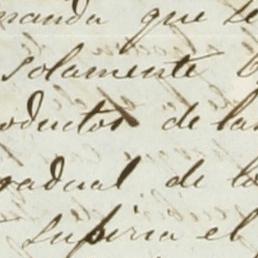 manda que se
solamente
oductos de las
gradual de lo
sufiria el